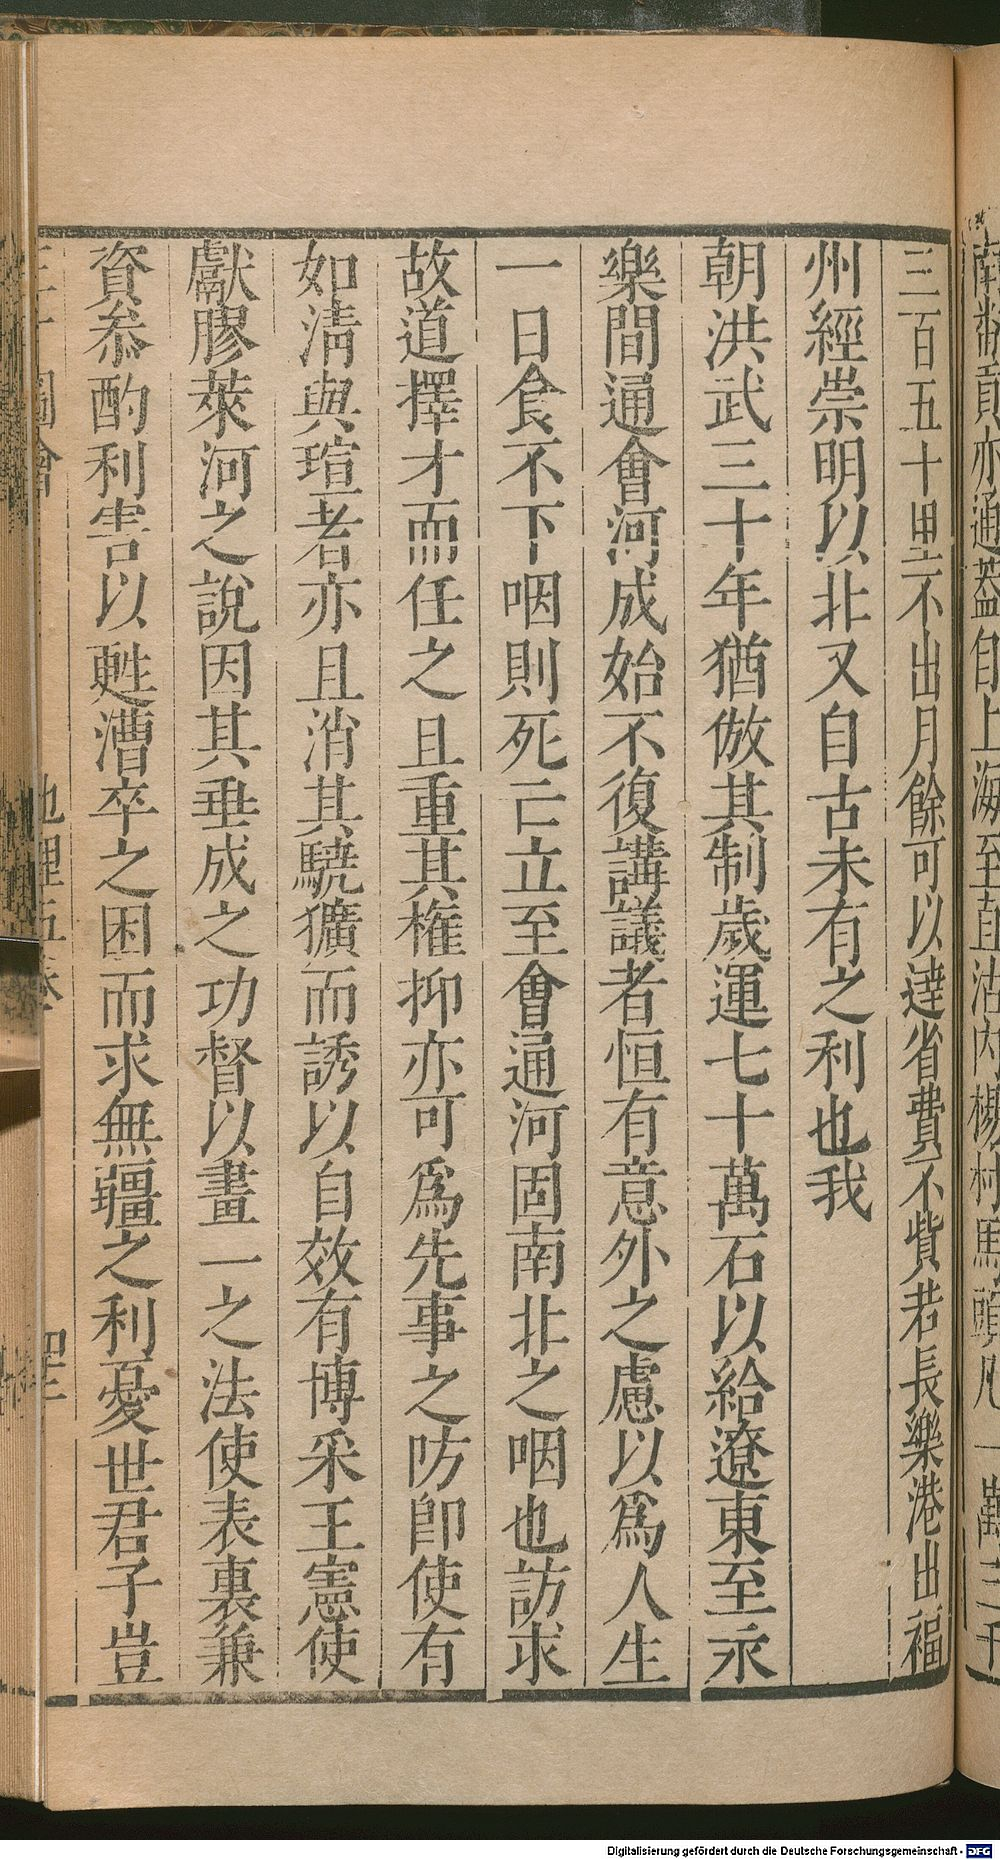 南類貢亦通葢自上海至直沽內楊村馬頭凡一萬三千
三百五十里不出月餘可以達省費不貲若長樂港出福
州經崇明以北又自古未有之利也我
朝洪武三十年猶倣其制歲運七十萬石以給遼東至永
樂間通會河成始不復講議者恒有意外之慮以爲人生
一日食不下咽則死亡立至會通河固南北之咽也訪求
故道擇才而任之且重其權抑亦可爲先事之防卽使有
如淸與瑄者亦且消其驍獷而誘以自效有博采王憲使
獻膠萊河之說因其垂成之功督以畫一之法使表裏兼
資叅酌利害以甦漕卒之困而求無疆之利憂世君子豈
三才圖會 地理五卷
Digitalisierung gefördert durch die Deutsche Forschungsgemeinschaft - DFG